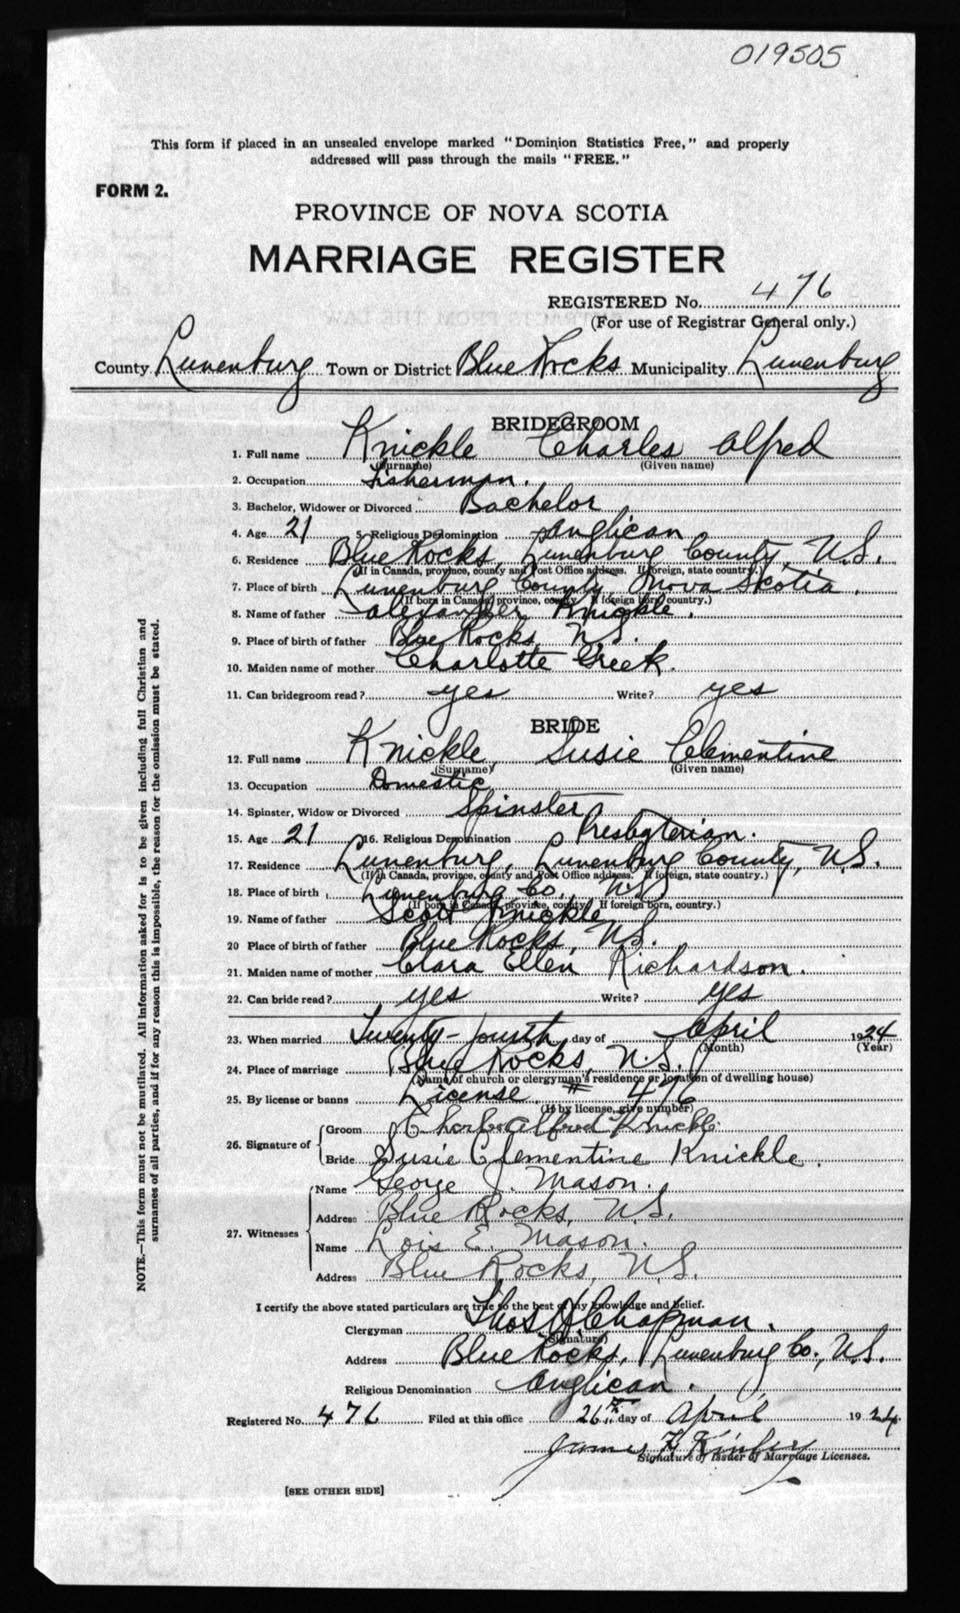 019505
This form if placed in an unsealed envelope marked "Dominion Statistics Free," and properly
addressed will pass through the mails "FREE."
FORM 2.
PROVINCE OF NOVA SCOTIA
MARRIAGE REGISTER
REGISTERED No. 476
(For use of Registrar General only.)
County Lunenburg Town or District Blue Rocks Municipality Lunenburg
BRIDEGROOM
1. Full name Knickle Charles Alfred
(Surname) (Given name)
2. Occupation Fisherman.
3. Bachelor, Widower or Divorced Bachelor
4. Age 21 5. Religious Denomination Anglican
6. Residence Blue Rocks, Lunenburg County, N.S.
(If in Canada, province, county and Post Office address. If foreign, state country.)
7. Place of birth Lunenburg County Nova Scotia.
(If born in Canada, province, county. If foreign born, country.)
8. Name of father Alexander Knickle.
9. Place of birth of father Blue Rocks, N.S.
10. Maiden name of mother Charlotte Greek.
11. Can bridegroom read? yes Write? yes
BRIDE
12. Full name Knickle, Susie Clementine
(Surname) (Given name)
13. Occupation Domestic
14. Spinster, Widow or Divorced Spinster
15. Age 21 16. Religious Denomination Presbyterian.
17. Residence Lunenburg, Lunenburg County, N.S.
(If in Canada, province, county and Post Office address. If foreign, state country.)
18. Place of birth Lunenburg Co., N.S.
(If born in Canada, province, county. If foreign born, country.)
19. Name of father Scott Knickle
20 Place of birth of father Blue Rocks, N.S.
21. Maiden name of mother Clara Ellen Richardson.
22. Can bride read? yes Write? yes
23. When married Twenty-fourth day of April 1924
(Month) (Year)
24. Place of marriage Blue Rocks, N.S.
(Name of church or clergyman's residence or location of dwelling house)
25. By license or banns License # 476
(If by license, give number)
26. Signature of
Groom Charles Alfred Knickle
Bride Susie Clementine Knickle.
27. Witnesses
Name George J. Mason.
Address Blue Rocks, N.S.
Name Lois E. Mason.
Address Blue Rocks, N.S.
I certify the above stated particulars are true to the best of my knowledge and belief.
Clergyman Thos H Chapman.
(Signature)
Address Blue Rocks, Lunenburg Co., N.S.
Religious Denomination Anglican.
Registered No. 476 Filed at this office 26th day of April 1924.
James
Signature of Issuer of Marriage Licenses.
[SEE OTHER SIDE]
NOTE.—This form must not be mutilated. All information asked for is to be given including full Christian and
surnames of all parties, and if for any reason this is impossible, the reason for the omission must be stated.